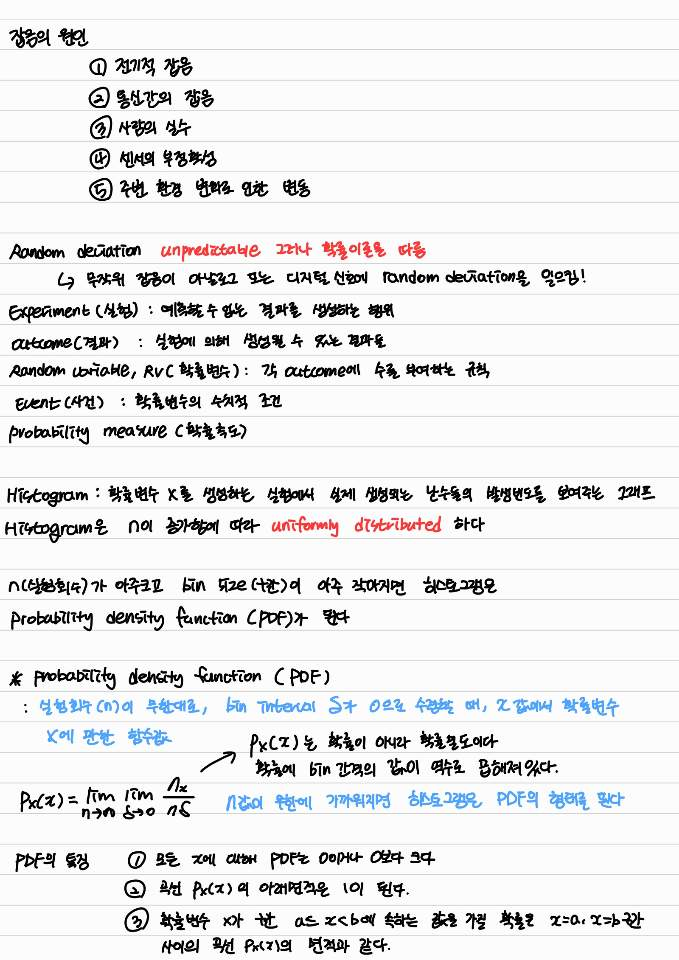 잡음의 원인
① 전기적 잡음
② 통신간의 잡음
③ 사람의 실수
④ 센서의 부정확성
⑤ 주변 환경 변화로 인한 변동
Random deviation unpredictable 그러나 확률이론을 따름
↳ 무작위 잡음이 아날로그 또는 디지털 신호에 random deviation을 일으킴!
Experiment (실험) : 예측할 수 없는 결과를 생성하는 행위
outcome (결과) : 실험에 의해 생성될 수 있는 결과들
Random variable, RV (확률변수) : 각 outcome에 수를 부여하는 규칙
Event (사건) : 확률변수의 수치적 조건
probability measure (확률측도)
Histogram : 확률변수 X를 생성하는 실험에서 실제 생성되는 난수들의 발생빈도를 보여주는 그래프
Histogram은 n이 증가함에 따라 uniformly distributed 하다
n(실험회수)가 아주크고 bin size(구간)이 아주 작아지면 히스토그램은
probability density function (PDF)가 된다
* probability density function (PDF)
: 실험회수(n)이 무한대로, bin interval δ가 0으로 수렴할 때, x값에서 확률변수
X에 관한 함수값
Px(x)는 확률이 아니라 확률밀도이다
확률에 bin 간격의 값이 역수로 곱해져있다.
Px(x) = lim n→∞ lim δ→0 nx / nδ
n값이 무한에 가까워지면 히스토그램은 PDF의 형태를 띈다
PDF의 특징 ① 모든 x에 대해 PDF는 0이거나 0보다 크다
② 곡선 Px(x)의 아래면적은 1이 된다.
③ 확률변수 x가 구간 a≤x<b에 속하는 값을 가질 확률은 x=a, x=b구간
사이의 곡선 Px(x)의 면적과 같다.